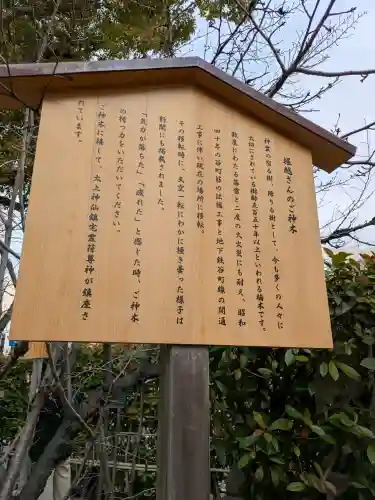 堀越さんのご神木
神霊の宿る樹・降りる樹として、今も多くの人々に
大切にされている樹齢五百五十年以上といわれる楠木です。
数度にわたる落雷と二度の大火災にも耐え、昭和
四十年の谷町筋の拡張工事と地下鉄谷町線の開通
工事に伴い現在の場所に移転。
その移転時に、天空一転にわかに掻き曇った様子は
新聞にも掲載されました。
「気力が落ちた」「疲れた」と感じた時、ご神木
の精つ力をいただいてください。
ご神木に接して、太上神仙鎮宅霊符尊神が鎮座さ
れています。